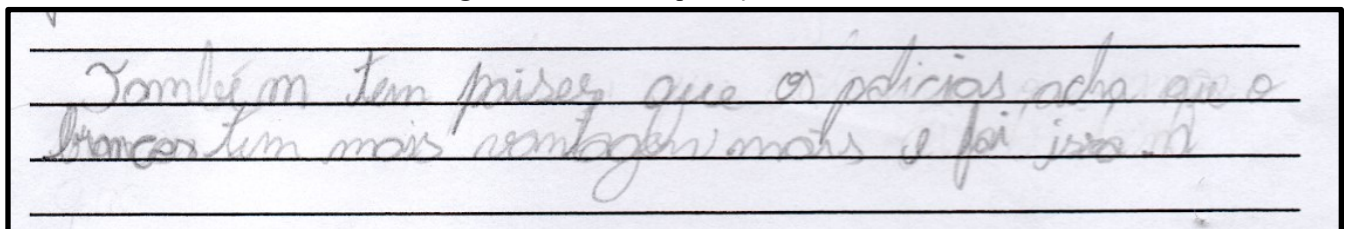 Também tem paises que os policias acha que o
brancos tem mais vantagem mais e foi isso.